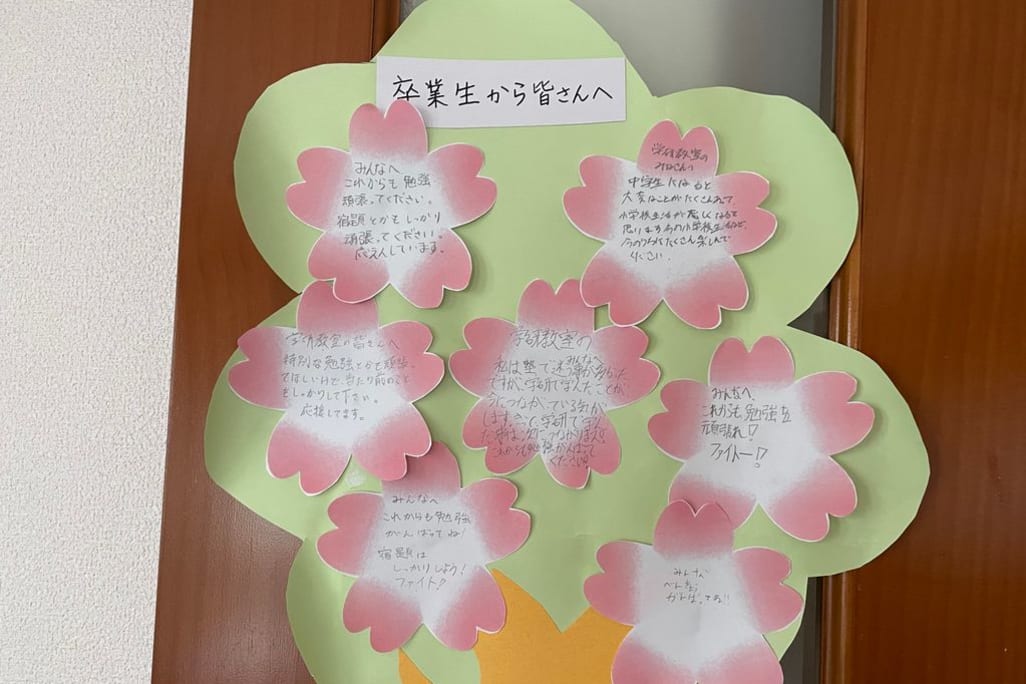 卒業生から皆さんへ
みんなへ
これからも勉強
頑張ってください。
宿題とかもしっかり
頑張ってください。
応えんしています。
学研教室の
みなさんへ
中学生になると
大変なことがたくさんあって
小学校生活が恋しくなると
思います今の小学校生活など、
今のうちにたくさん楽しんで
ください。
学研教室の皆さんへ
特別な勉強とかも頑張っ
てほしいけど、当たり前のこと
をしっかりして下さい。
応援してます。
学研教室の
みんなへ
私は塾で迷う事があっ
ですが、学研で学んだことが、
今につながっている気が
します。きっと学研で学ん
だ事は
これからも勉強がんばって
ください!
みんなへ
これからも勉強を
頑張れ!
ファイトー!
みんなへ
これからも勉強
がんばってね!
宿題は
しっかりしよう!
ファイト!
みんな
べん強
がんばってね!!